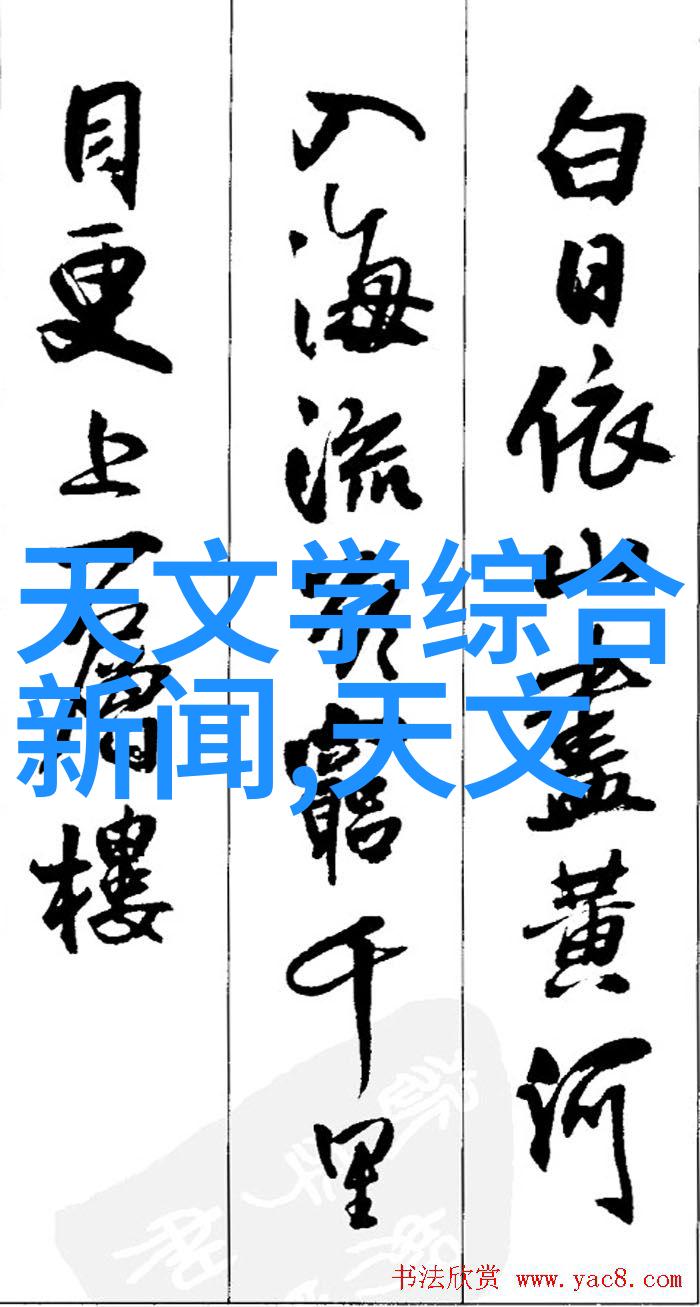 白日依山盡黄河
入海流欲窮千里
目更上一層樓
天文学综合
新闻,天文
书法欣赏 www.yac8.com